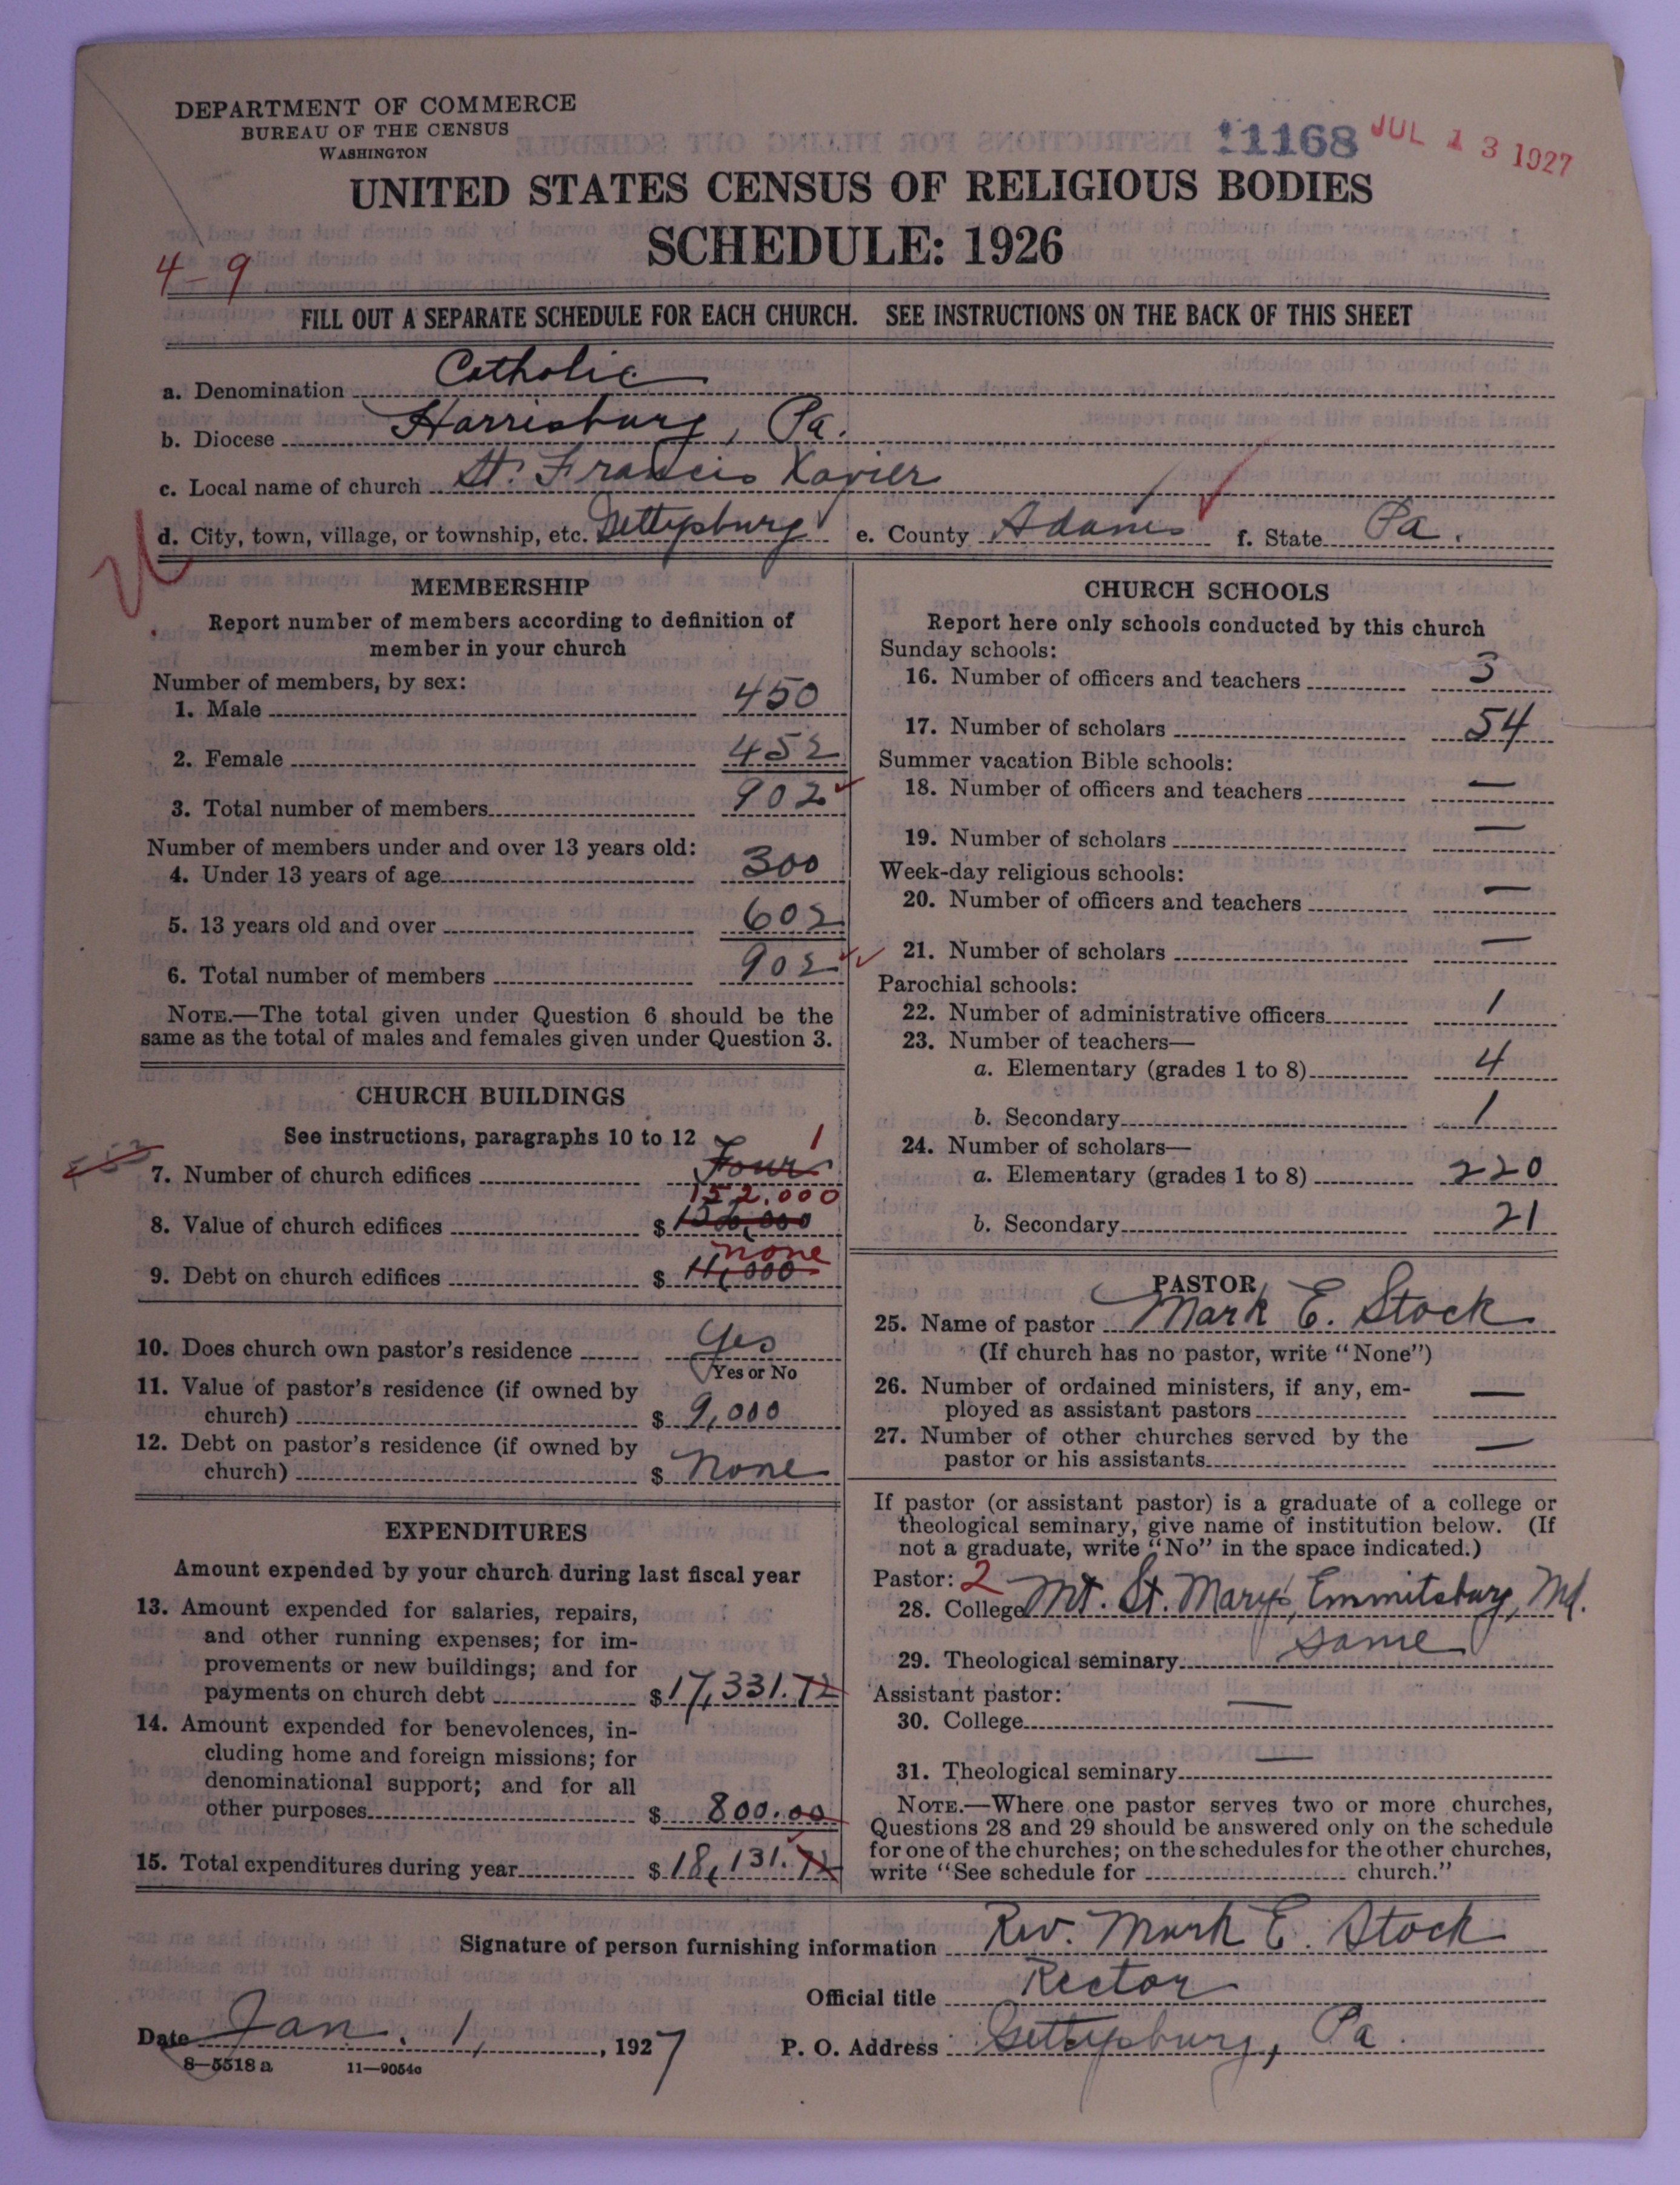 DEPARTMENT OF COMMERCE
BUREAU OF THE CENSUS
WASHINGTON
11168 JUL 13 1927
UNITED STATES CENSUS OF RELIGIOUS BODIES
SCHEDULE: 1926
4-9
FILL OUT A SEPARATE SCHEDULE FOR EACH CHURCH. SEE INSTRUCTIONS ON THE BACK OF THIS SHEET
a. Denomination Catholic
b. Diocese Harrisburg, Pa.
c. Local name of church St. Francis Xavier
d. City, town, village, or township, etc. Gettysburg e. County Adams f. State Pa.
MEMBERSHIP
Report number of members according to definition of
member in your church
Number of members, by sex:
1. Male 450
2. Female 452
3. Total number of members 902
Number of members under and over 13 years old:
4. Under 13 years of age 300
5. 13 years old and over 602
6. Total number of members 902
NOTE.—The total given under Question 6 should be the
same as the total of males and females given under Question 3.
CHURCH BUILDINGS
See instructions, paragraphs 10 to 12
7. Number of church edifices Four 1
152.000
8. Value of church edifices $
none
9. Debt on church edifices $ 11,000
10. Does church own pastor's residence Yes
Yes or No
11. Value of pastor's residence (if owned by
church) $ 9,000
12. Debt on pastor's residence (if owned by
church) $ None
EXPENDITURES
Amount expended by your church during last fiscal year
13. Amount expended for salaries, repairs,
and other running expenses; for im-
provements or new buildings; and for
payments on church debt $ 17,331.72
14. Amount expended for benevolences, in-
cluding home and foreign missions; for
denominational support; and for all
other purposes $ 800.00
15. Total expenditures during year $ 18,131.72
CHURCH SCHOOLS
Report here only schools conducted by this church
Sunday schools:
16. Number of officers and teachers 3
17. Number of scholars 54
Summer vacation Bible schools:
18. Number of officers and teachers —
19. Number of scholars —
Week-day religious schools:
20. Number of officers and teachers —
21. Number of scholars —
Parochial schools:
22. Number of administrative officers 1
23. Number of teachers—
a. Elementary (grades 1 to 8) 4
b. Secondary 1
24. Number of scholars—
a. Elementary (grades 1 to 8) 220
b. Secondary 21
PASTOR
25. Name of pastor Mark E. Stock
(If church has no pastor, write "None")
26. Number of ordained ministers, if any, em-
ployed as assistant pastors —
27. Number of other churches served by the
pastor or his assistants —
If pastor (or assistant pastor) is a graduate of a college or
theological seminary, give name of institution below. (If
not a graduate, write "No" in the space indicated.)
Pastor: 2
28. College Mt. St. Mary's, Emmitsburg, Md.
29. Theological seminary same
Assistant pastor:
30. College —
31. Theological seminary —
NOTE.—Where one pastor serves two or more churches,
Questions 28 and 29 should be answered only on the schedule
for one of the churches; on the schedules for the other churches,
write "See schedule for church."
Signature of person furnishing information Rev. Mark E. Stock
Official title Rector
Date Jan. 1, 1927 P. O. Address Gettysburg, Pa.
8—5518 a 11—9054c